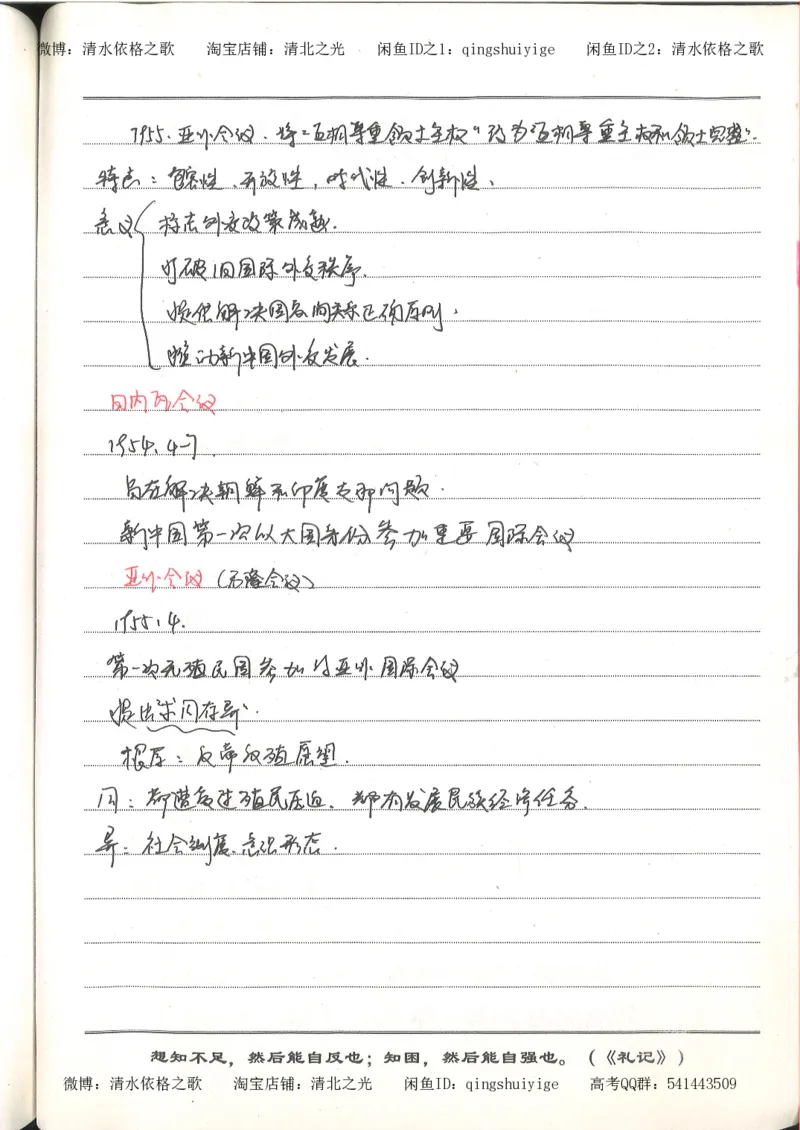 微博：清水依格之歌 淘宝店铺：清北之光 闲鱼ID之1：qingshuiyige 闲鱼ID之2：清水依格之歌
1955.亚非会议.将"互相尊重领土主权"改为"互相尊重主权和领土完整".
特点：包容性、开放性，时代性.创新性、
意义 标志外交政策成熟.
打破旧国际外交秩序.
提供解决国与国间关系正确原则，
推动新中国外交发展.
日内瓦会议
1954.4-7.
旨在解决朝鲜和印度支那问题.
新中国第一次以大国身份参加重要国际会议
亚非会议（万隆会议）
1955.4.
第一次无殖民国参加的亚非国际会议
提出求同存异.
根源：反帝反殖愿望.
同：都遭受过殖民压迫.都有发展民族经济任务.
异：社会制度.意识形态.
想知不足，然后能自反也；知困，然后能自强也。（《礼记》）
微博：清水依格之歌 淘宝店铺：清北之光 闲鱼ID：qingshuiyige 高考QQ群：541443509